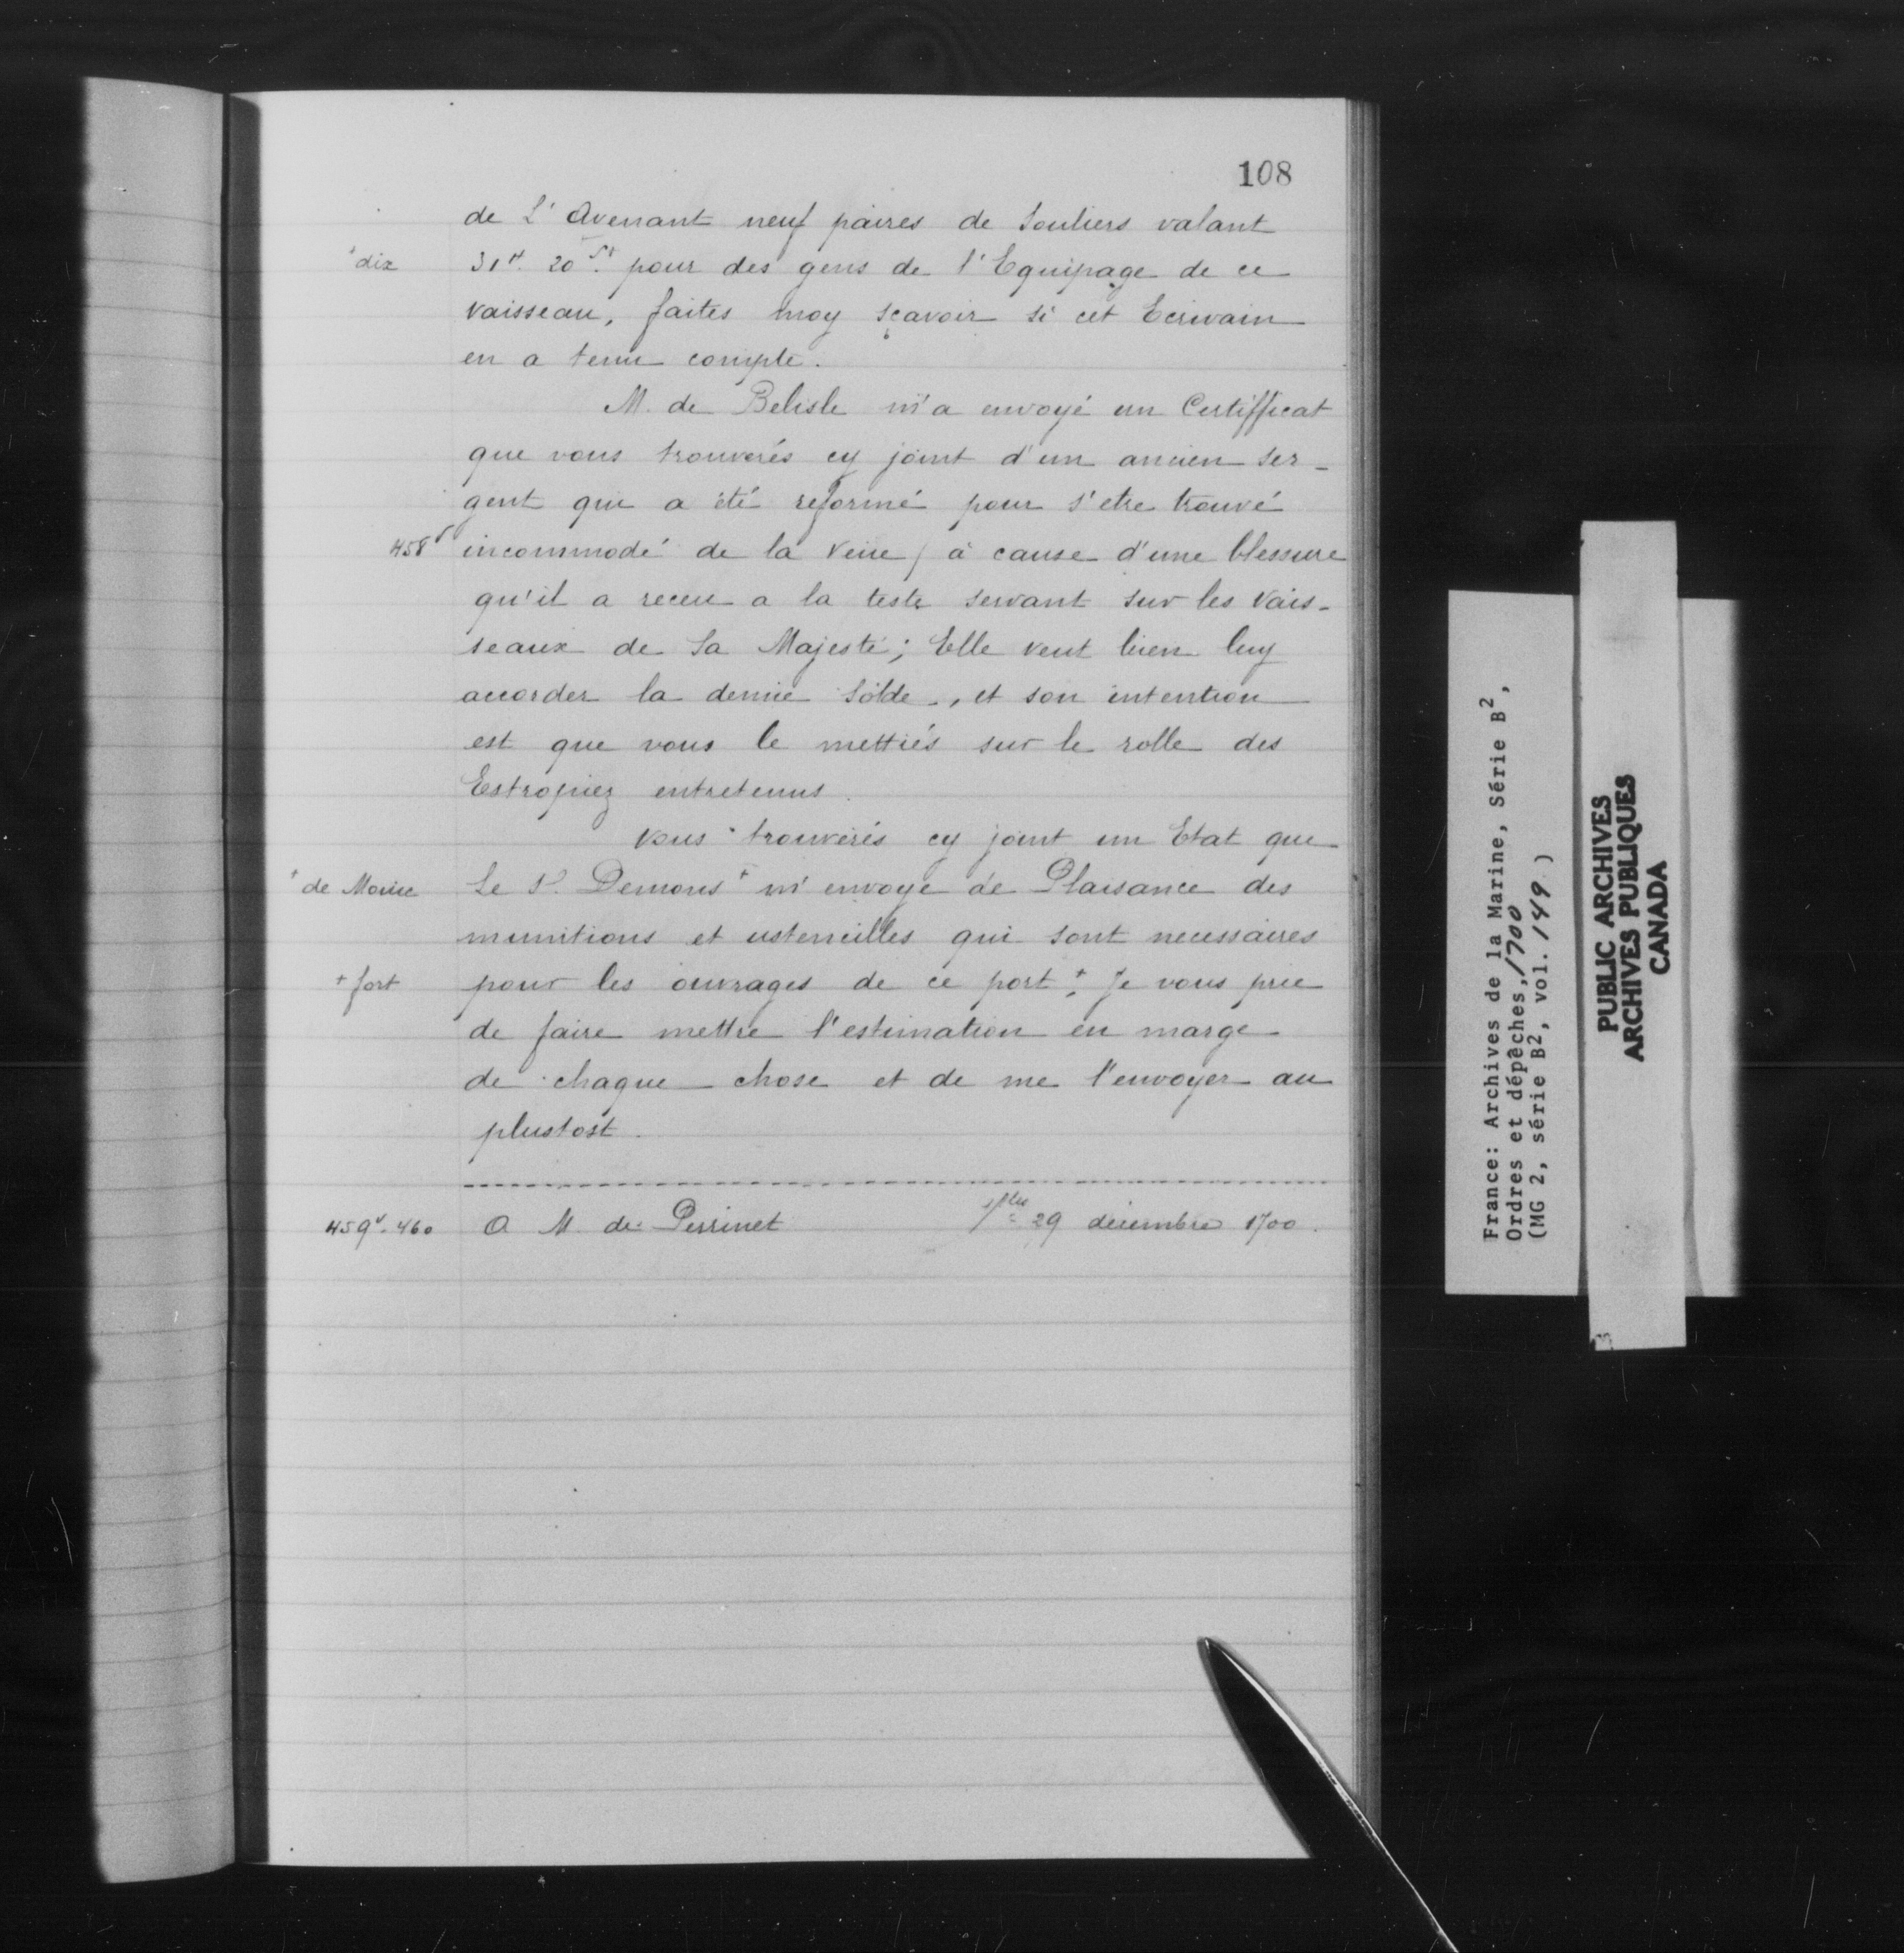 108
de L' Avenant neuf paires de Souliers valant
+ dix 31# 20 st. pour des gens de l'Equipage de ce
vaisseau, faites moy sçavoir si cet Ecrivain
en a tenu compte.
M. de Belisle m'a envoyé un Certifficat
que vous trouverés cy joint d'un ancien ser-
gent qui a été reformé pour s'etre trouvé
458v incommodé de la veüe / à cause d'une blessure
qu'il a receu a la teste servant sur les Vais-
seaux de Sa Majesté; Elle veut bien luy
accorder la demie Solde, et son intention
est que vous le mettiés sur le rolle des
Estropiez entretenus.
Vous trouverés cy joint un Etat que
+ de Monic Le Sr. Demons + m'envoye de Plaisance des
munitions et ustencilles qui sont necessaires
+ fort pour les ouvrages de ce port +. Je vous prie
de faire mettre l'estimation en marge
de chaque chose et de me l'envoyer au
plustost.
459v-460 A M. de Perrinet Vlles 29 décembre 1700.
France: Archives de la Marine, Série B2,
Ordres et dépêches, 1700
(MG 2, série B2, vol. 149 )
PUBLIC ARCHIVES
ARCHIVES PUBLIQUES
CANADA
3